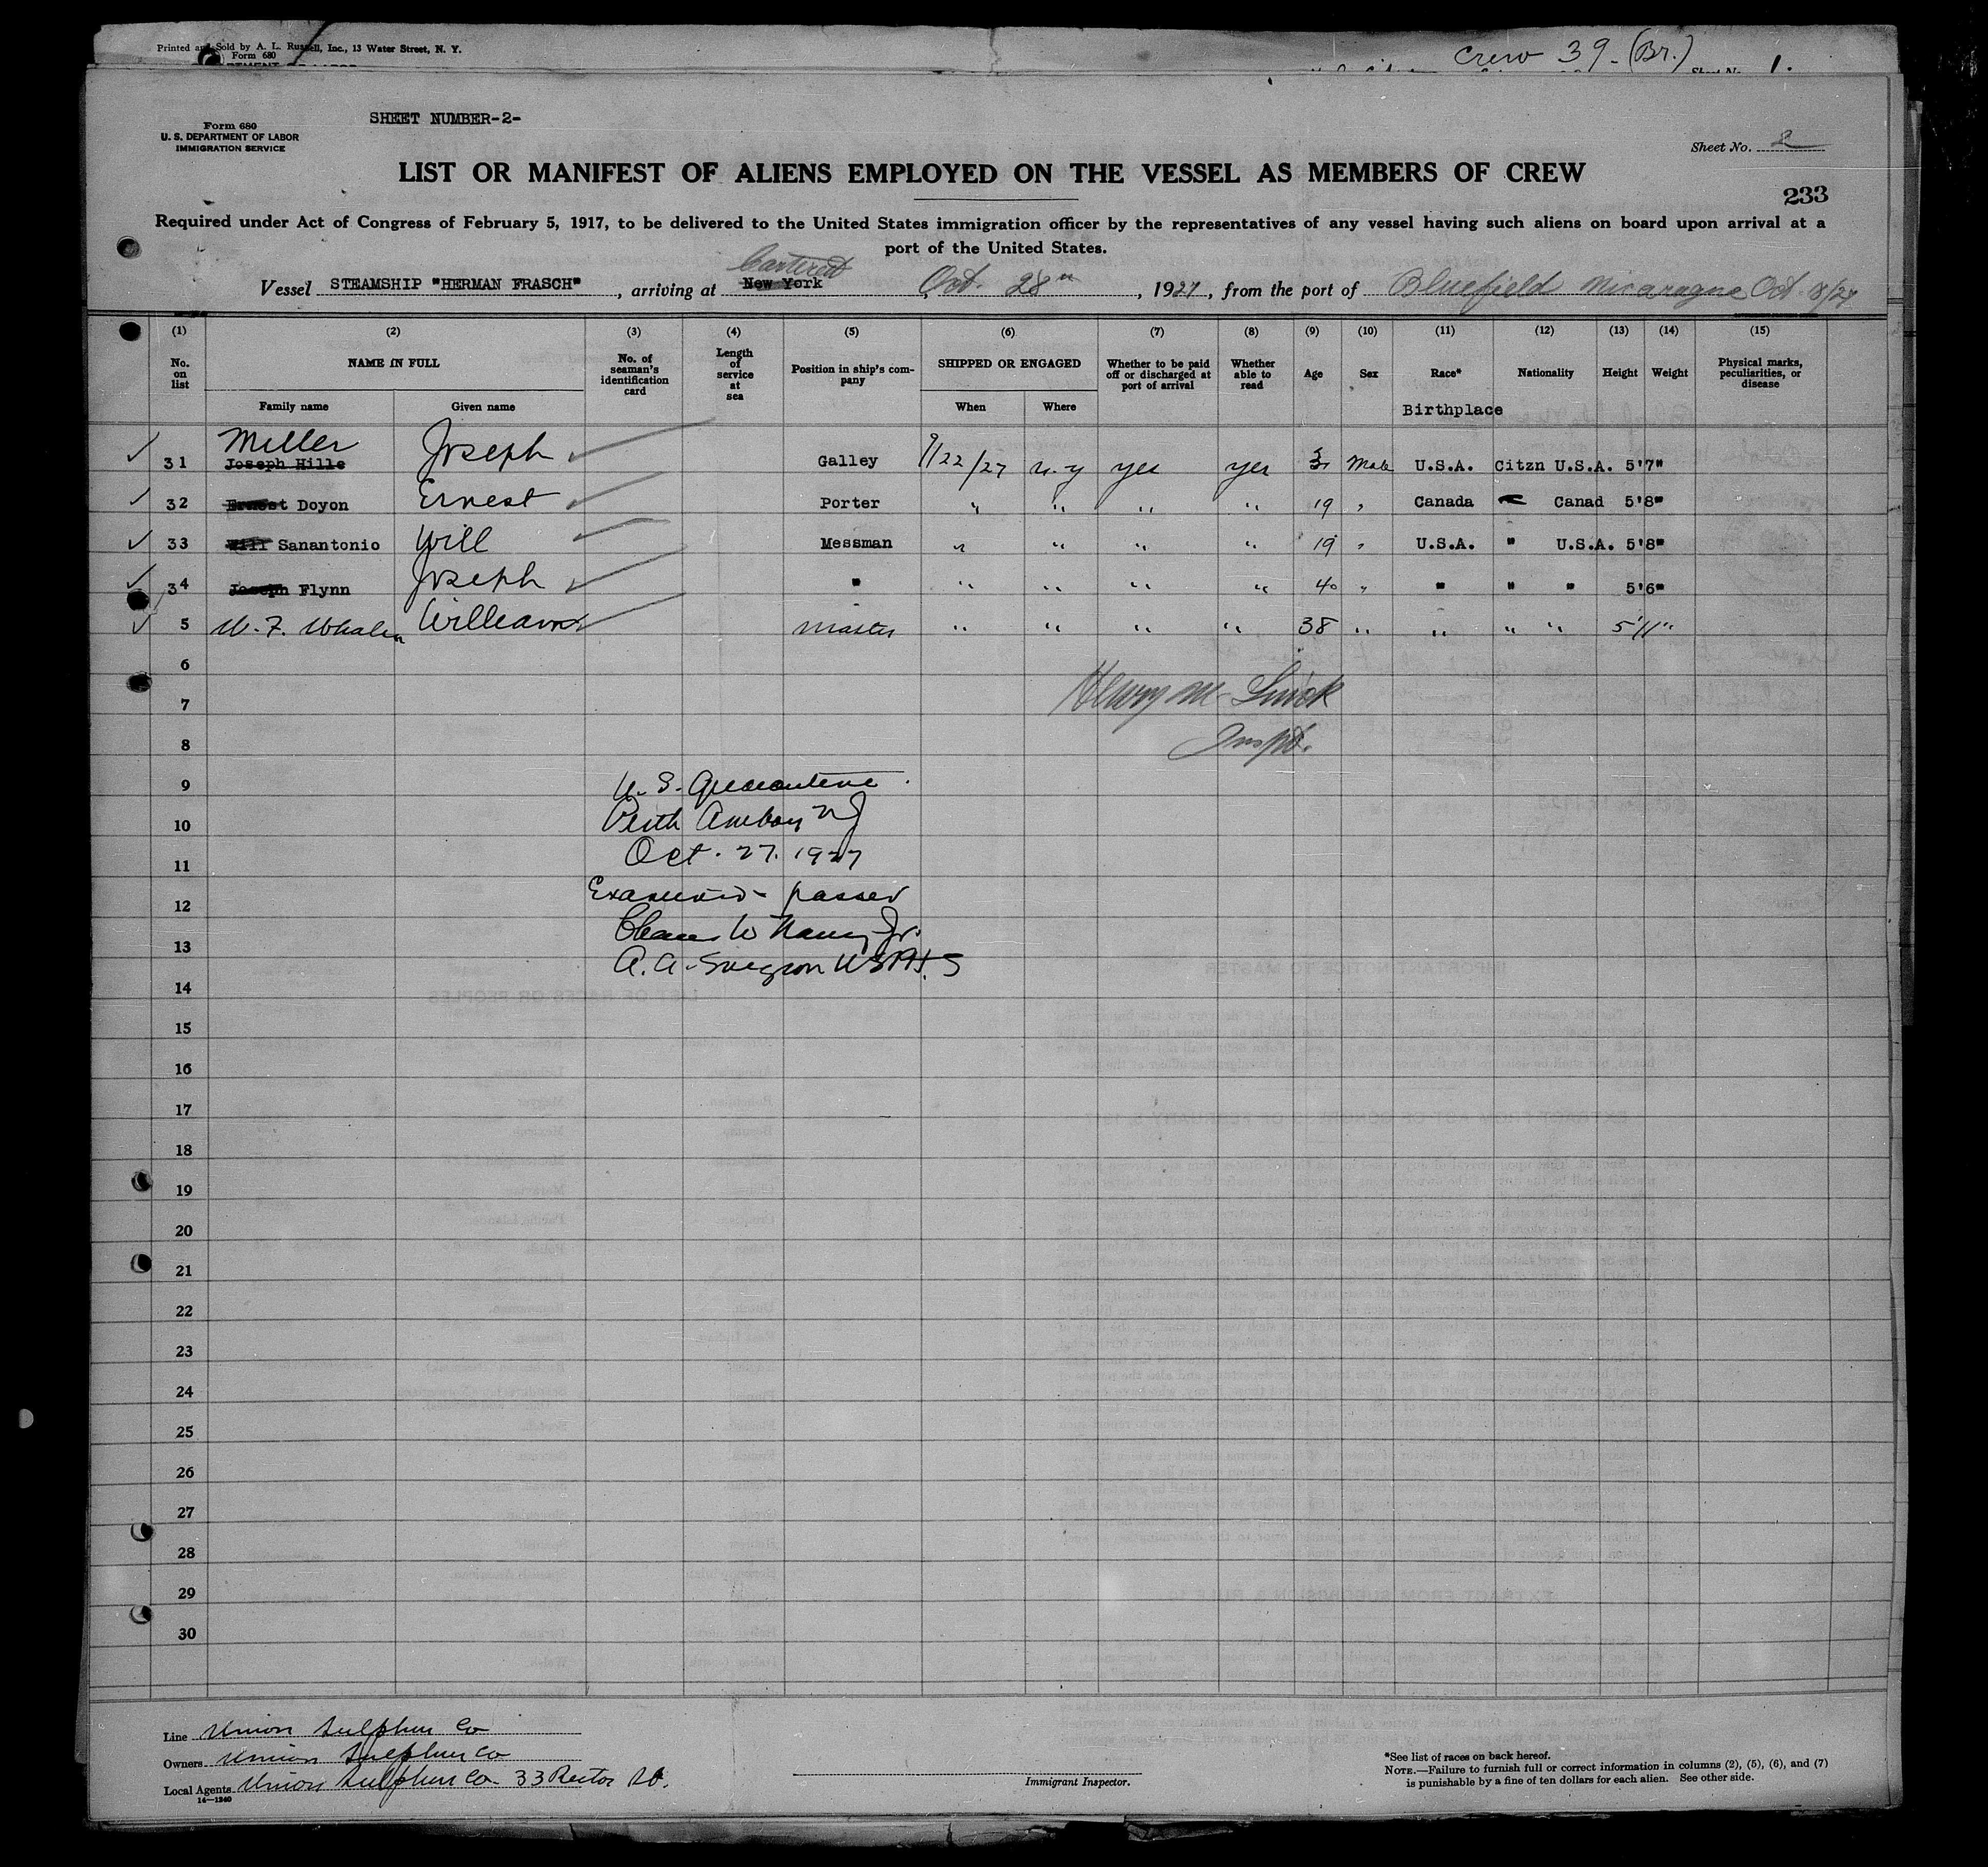 Printed and Sold by A. L. Russell, Inc., 13 Water Street, N. Y.
Form 680
Crew 39 - (Br.)
Sheet No. 1.
Form 680
U. S. DEPARTMENT OF LABOR
IMMIGRATION SERVICE
SHEET NUMBER-2-
Sheet No. 2
LIST OR MANIFEST OF ALIENS EMPLOYED ON THE VESSEL AS MEMBERS OF CREW
233
Required under Act of Congress of February 5, 1917, to be delivered to the United States immigration officer by the representatives of any vessel having such aliens on board upon arrival at a
port of the United States.
Carteret
Vessel STEAMSHIP "HERMAN FRASCH", arriving at New York, Oct. 28th, 1927, from the port of Bluefield Nicaragua Oct. 18/27
(1) (2) (3) (4) (5) (6) (7) (8) (9) (10) (11) (12) (13) (14) (15)
No. on list NAME IN FULL No. of seaman's identification card Length of service at sea Position in ship's company SHIPPED OR ENGAGED Whether to be paid off or discharged at port of arrival Whether able to read Age Sex Race* Nationality Height Weight Physical marks, peculiarities, or disease
Family name Given name When Where Birthplace
Miller Joseph
31 Joseph Hille Galley 9/22/27 N.Y yes yes Male U.S.A. Citzn U.S.A. 5'7"
32 Ernest Doyon Ernest Porter " " " " 19 " Canada Canad 5'8"
33 Will Sanantonio Will Messman " " " " 19 " U.S.A. " U.S.A. 5'8"
34 Joseph Flynn Joseph " " " " " 40 " " " " 5'6"
5 W. F. Whalen William master " " " " 38 " " " " 5'11"
6
7
Henry M
8
Inspt.
9
U. S. Quarantine
10
Perth Amboy NJ
11
Oct. 27. 1927
12
Examined - passed
13
W Jr.
A. A. Surgeon USPHS
14
15
16
17
18
19
20
21
22
23
24
25
26
27
28
29
30
Line Union Sulphur Co
Owners Union Sulphur Co
Local Agents Union Sulphur Co. 33 Rector St.
14-1240
Immigrant Inspector.
*See list of races on back hereof.
NOTE.—Failure to furnish full or correct information in columns (2), (5), (6), and (7)
is punishable by a fine of ten dollars for each alien. See other side.